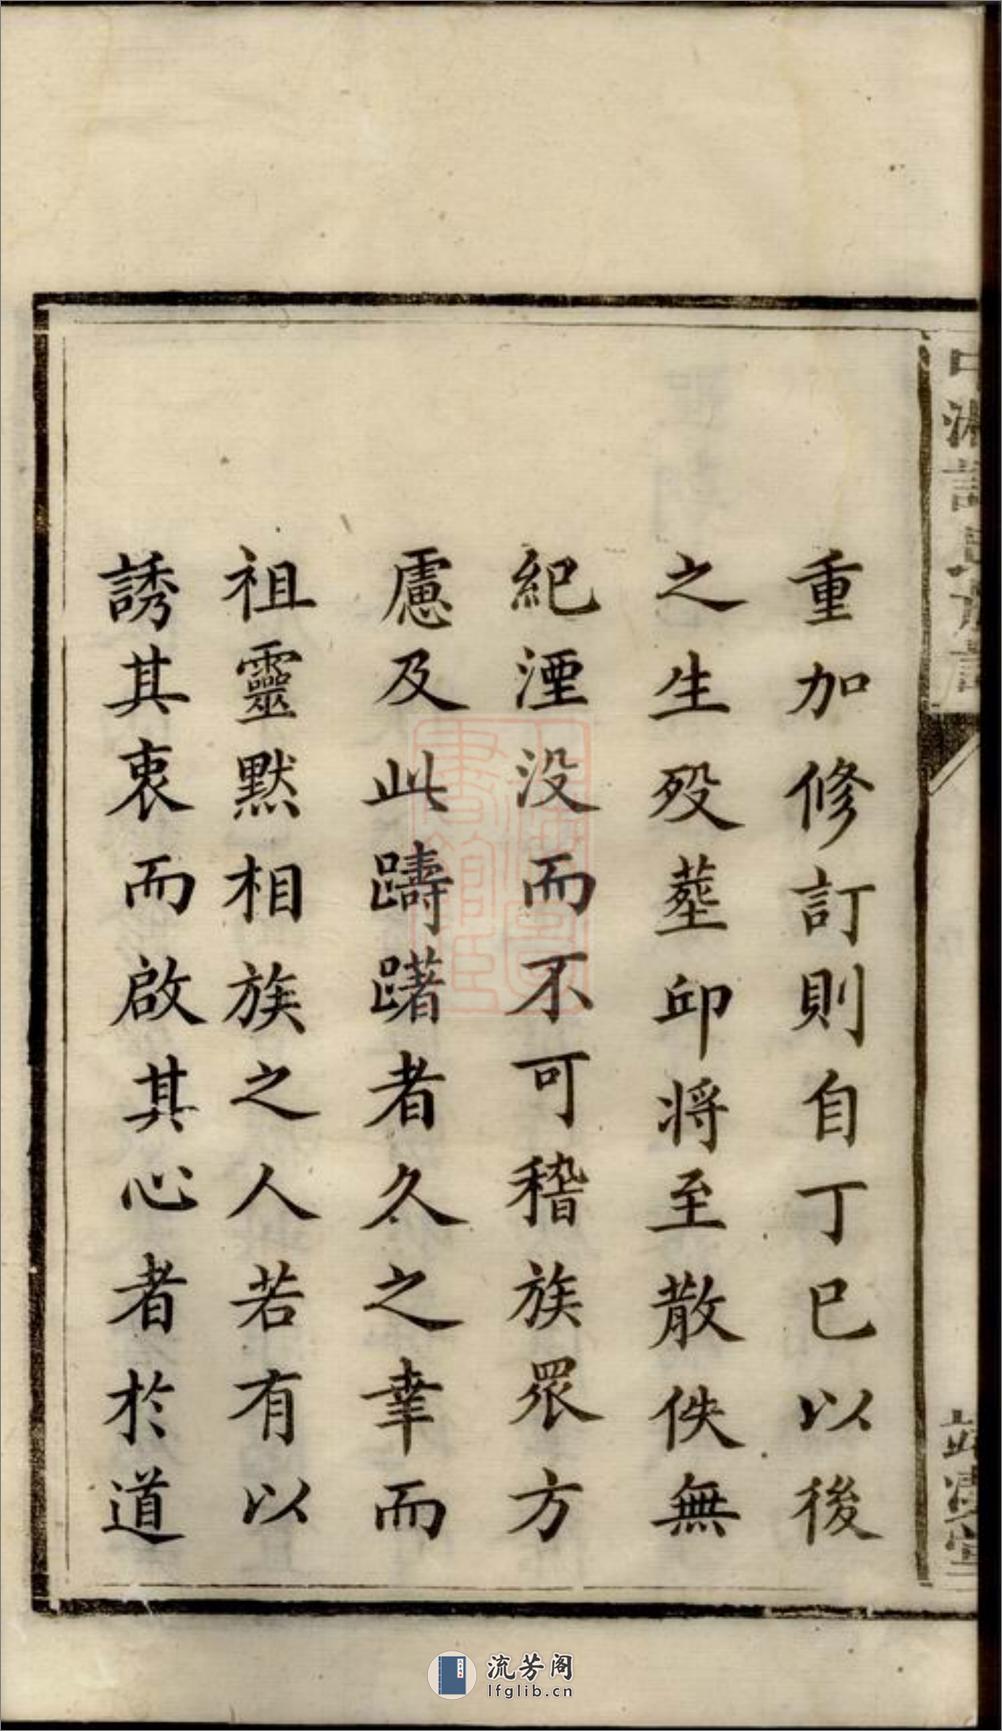 重加修訂則自丁巳以後
之生殁塟邱將至散佚無
紀湮没而不可稽族眾方
慮及此躊躇者久之幸而
祖靈默相族之人若有以
誘其衷而啟其心者於道
流芳阁
lfglib.cn